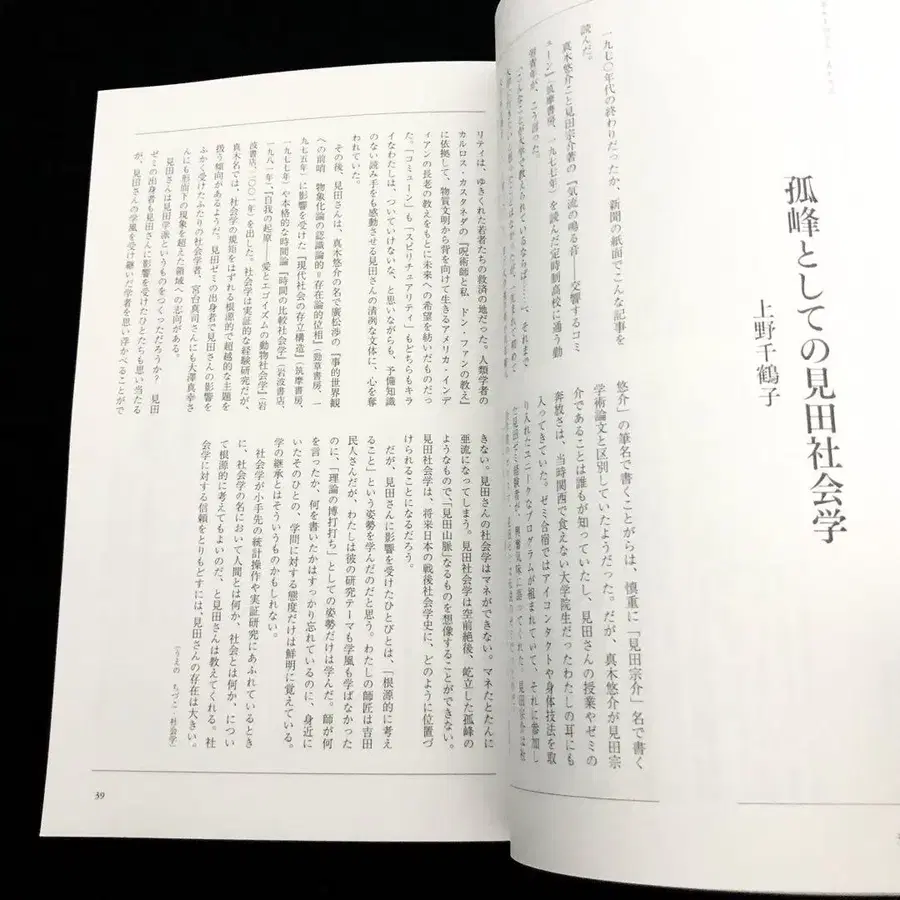 孤峰としての見田社会学
上野千鶴子
一九七〇年代の終わりだったか、新聞の紙面でこんな記事を
読んだ。
真木悠介こと見田宗介著の『気流の鳴る音――交響するコミ
ューン』（筑摩書房、一九七七年）を読んだ定時制高校に通う勤
労青年が、こう言った。
悠介」の筆名で書くことがらは、慎重に「見田宗介」名で書く
学術論文と区別していたようだった。だが、真木悠介が見田宗
介であることは誰もが知っていたし、見田さんの授業やゼミの
奔放さは、当時関西で食えない大学院生だったわたしの耳にも
入ってきていた。ゼミ合宿ではアイコンタクトや身体技法を取
り入れたユニークなプログラムが組まれていて、それに参加し
リティは、ゆきくれた若者たちの救済の地だった。人類学者の
カルロス・カスタネダの『呪術師と私 ドン・ファンの教え』
に依拠して、物質文明から背を向けて生きるアメリカ・インデ
ィアンの長老の教えをもとに未来への希望を紡いだものだっ
た。「コミューン」も「スピリチュアリティ」もどちらもキラ
イなわたしは、ついていけないな、と思いながらも、予備知識
のない読み手をも感動させる見田さんの清冽な文体に、心を奪
われていた。
その後、見田さんは、真木悠介の名で廣松渉の『事的世界観
への前哨 物象化論の認識論的＝存在論的位相』（勁草書房、一
九七五年）に影響を受けた『現代社会の存立構造』（筑摩書房、
一九七七年）や本格的な時間論『時間の比較社会学』（岩波書店、
一九八一年）、『自我の起原――愛とエゴイズムの動物社会学』（岩
波書店、二〇〇一年）を出した。社会学は実証的な経験研究だが、
真木名では、社会学の規矩をはずれる根源的で超越的な主題を
扱う傾向があるようだ。見田ゼミの出身者で見田さんの影響を
ふかく受けたふたりの社会学者、宮台真司さんにも大澤真幸さ
んにも形而下の現象を超えた領域への志向がある。
見田さんは見田学派というものをつくっただろうか？ 見田
ゼミの出身者も見田さんに影響を受けたひとたちも思い当たる
が、見田さんの学風を受け継いだ学者を思い浮かべることがで
きない。見田さんの社会学はマネができない。マネたとたんに
亜流になってしまう。見田社会学は空前絶後、屹立した孤峰の
ようなもので、「見田山脈」なるものを想像することができない。
見田社会学は、将来日本の戦後社会学史に、どのように位置づ
けられることになるだろう。
だが、見田さんに影響を受けたひとびとは、「根源的に考え
ること」という姿勢を学んだのだと思う。わたしの師匠は吉田
民人さんだが、わたしは彼の研究テーマも学風も学ばなかった
のに、「理論の博打打ち」としての姿勢だけは学んだ。師が何
を言ったか、何を書いたかはすっかり忘れているのに、身近に
いたそのひとの、学問に対する態度だけは鮮明に覚えている。
学の継承とはそういうものかもしれない。
社会学が小手先の統計操作や実証研究にあふれているとき
に、社会学の名において人間とは何か、社会とは何か、につい
て根源的に考えてもよいのだ、と見田さんは教えてくれる。社
会学に対する信頼をとりもどすには、見田さんの存在は大きい。
（うえの ちづこ・社会学）
39